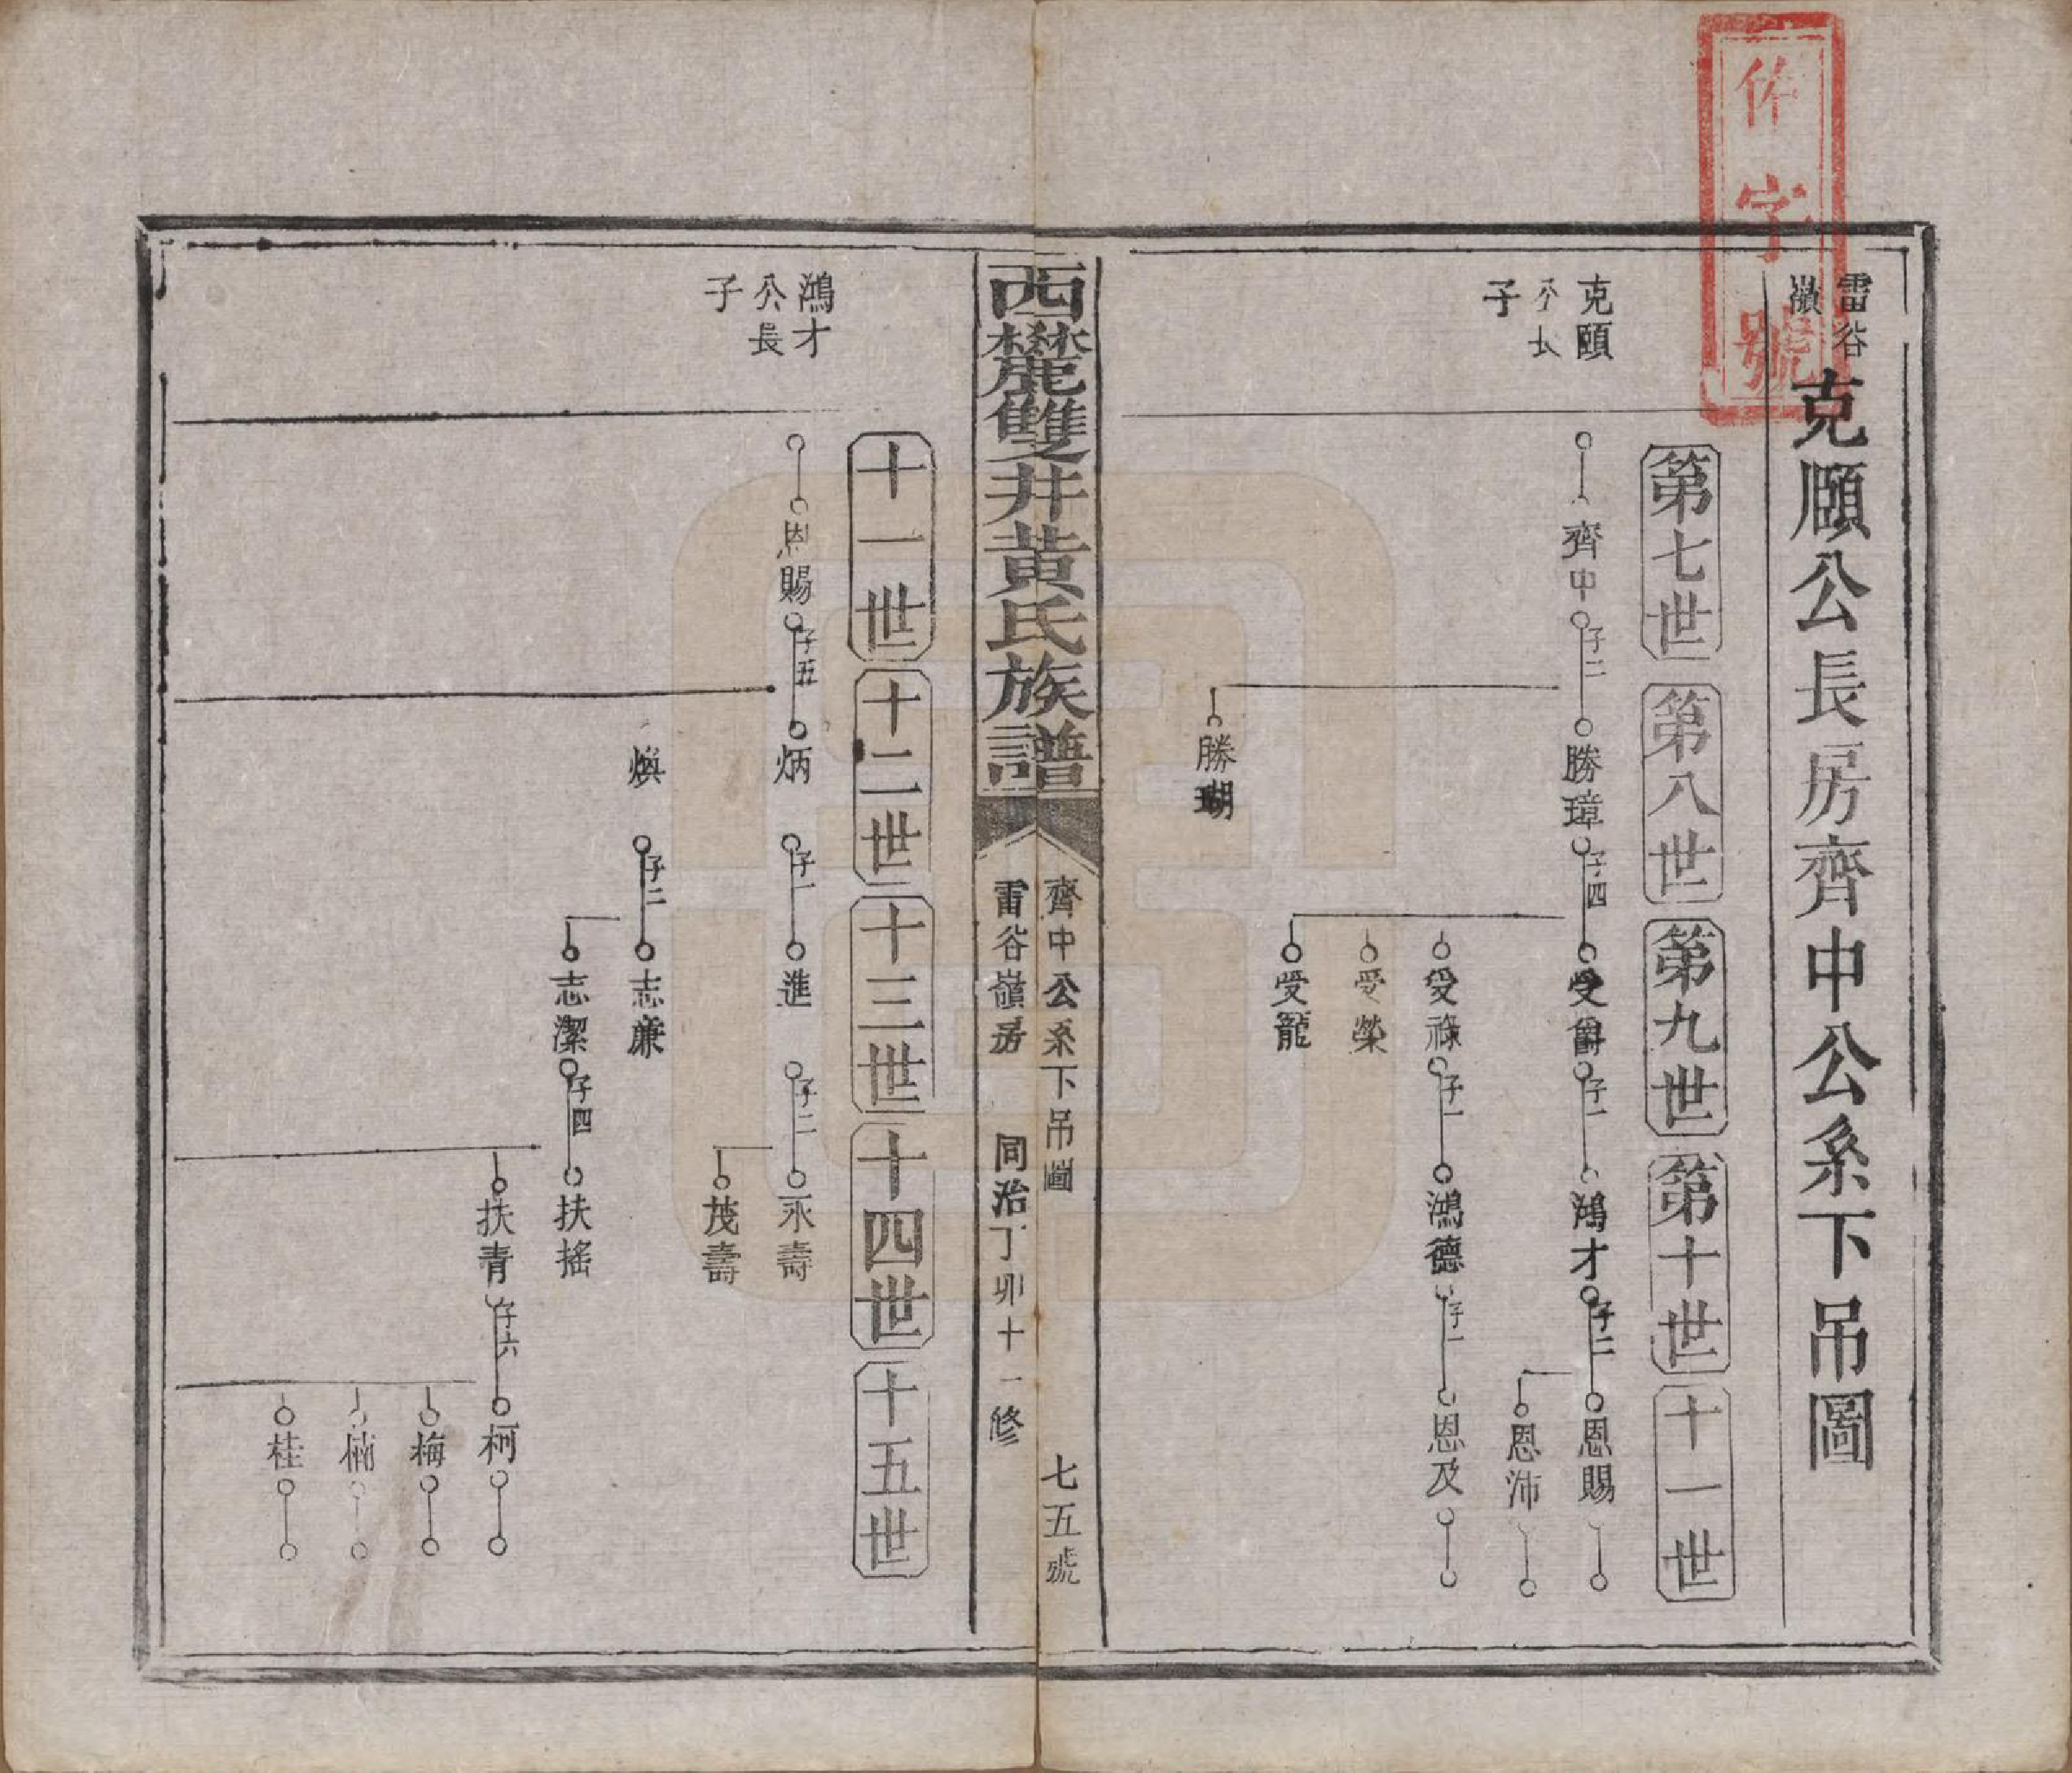 作字號
雷谷嶺
克頤公長房齊中公系下吊圖
第七世
第八世
第九世
第十世
十一世
克頤公長子
齊中 子二
勝璋 子四
受爵 子一
鴻才 子二
恩賜
恩沛
受祿 子一
鴻德 子一
恩及
受榮
受寵
勝瑚
西麓雙井黃氏族譜
齊中公系下吊圖
七五號
雷谷嶺房
同治丁卯十一修
十一世
十二世
十三世
十四世
十五世
鴻才公長子
恩賜 子五
炳 子一
進 子二
永壽
茂壽
煥 子二
志廉
志潔 子四
扶搖
扶青 子六
柯
梅
楠
桂